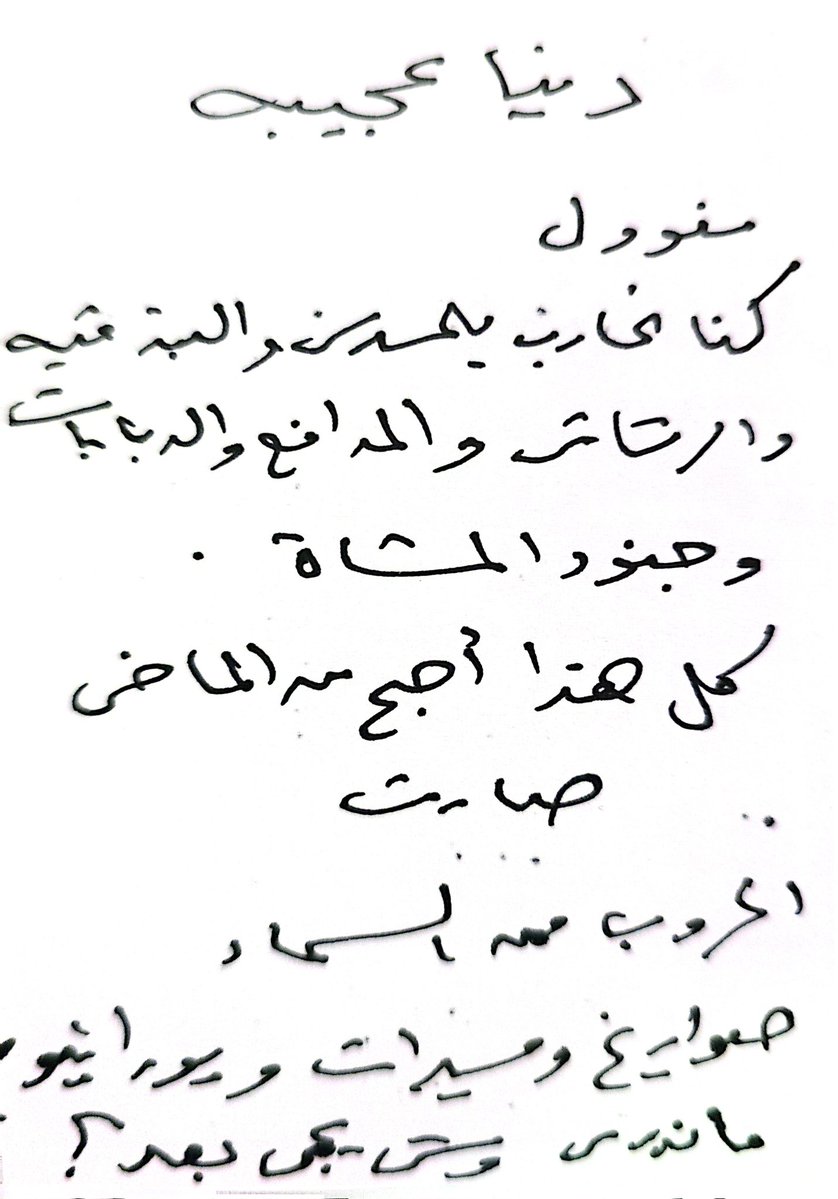 دنيا عجيبه
كنا نحارب بالمسدس والبندقيه
والرشاش والمدافع والدبابات
وجنود المشاة .
كل هذا أصبح من الماضى
صارت
الحروب من السماء
صواريخ ومسيرات
ماندرى وش يجى بعد؟